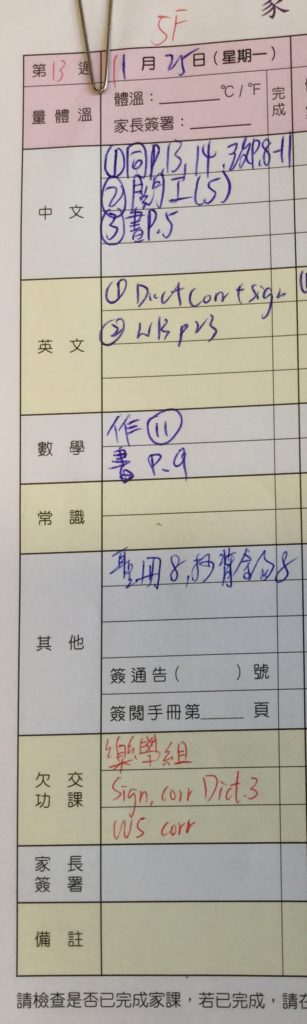 家
5F
第13週 11月25日(星期一)
量體溫 體溫：______°C/°F 完成
家長簽署：______
中文
①同P.13,14,改P.8-11
②閱工(5)
③書P.5
英文
① Dict corr + sign
② WB p23
數學
作⑪
書 P.9
常識
其他
聖冊8,抄背金句8
簽通告( )號
簽閱手冊第____頁
欠交功課
樂學組
Sign, corr Dict.3
WS corr
家長簽署
備註
請檢查是否已完成家課，若已完成，請在